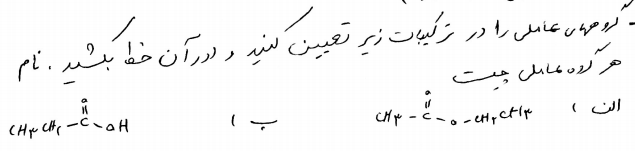 - گروههای عاملی را در ترکیبات زیر تعیین کنید و دور آن خط بکشید. نام
هر گروه عاملی چیست
الف) CH۳-C-O-CH۲CH۳ ب) CH۳CH۲-C-OH
O O